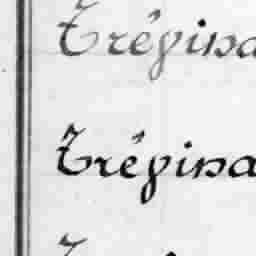 Trégina
Trégina